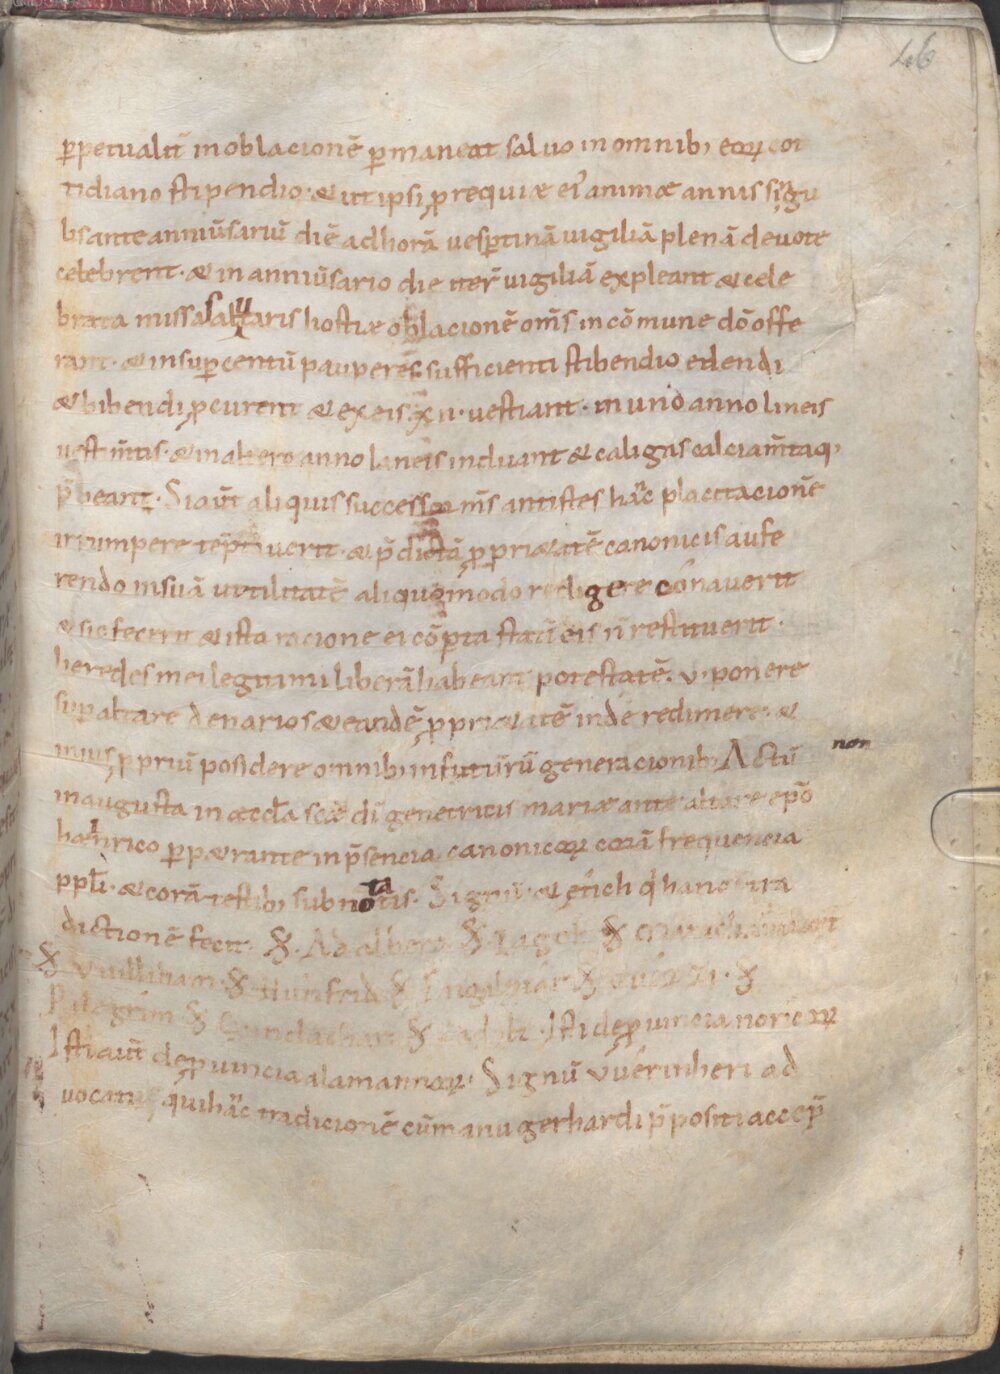 46
ꝑpetualit̄ in oblacionē ꝑmaneat saluo in omnib; eoꝝ cot
tidiano stipendio · & ut ipsi ꝓ requiæ ei᾽ animæ annis singu
lis ante anniūsariū diē ad horā uesꝑtinā uigiliā plenā deuote
celebrent · & in anniūsario die iter̄ uigiliā expleant & cele
brata missa salutaris hostiæ oblacionē om̄s in cōmune dō offe
rant · & insuꝑ centū pauperes sufficienti stibendio edendi
& bibendi ꝓcurent & ex eis · xii · uestiant · in uno anno lineis
uestīn̄tis · & in altero anno laneis induant & caligas calciam̄taq;
p̄beant · Si aut̄ aliquis successor m̄s antistes hāc placitacionē
irrumpere uerit · & p̄dictā ꝓpri&atē canonicis aufe
rendo in suā utilitatē aliquomodo redigere conauerit
& sic fecerit & ista racione ei cōꝑta statī eis n̄ restituerit ·
heredes mei legitimi liberā habeant potestatē · v · ponere
suꝑ altare denarios & eandē ꝓpri&atē inde redimere · &
in ius ꝓpriū posidere omnib; in futurū generacionib; Actū non
in augusta in æccła scæ dī genetricis mariæ ante altare epō
hainrico ꝑp&rante in p̄sencia canonicoꝝ corā frequencia
ppłi · & corā testib; subnotatis · Signū · & erich q̇ hanc tra
dictionē fecit · Adalbero
Vuilliham · Hunfrid
Pilegrim · Isti de ꝓuincia noricoꝝ
Isti aut̄ de ꝓuincia alamannoꝝ · Signū vverinheri ad
uocati qui hāc tradicionē cū manu gerhardi p̄positi accep̄